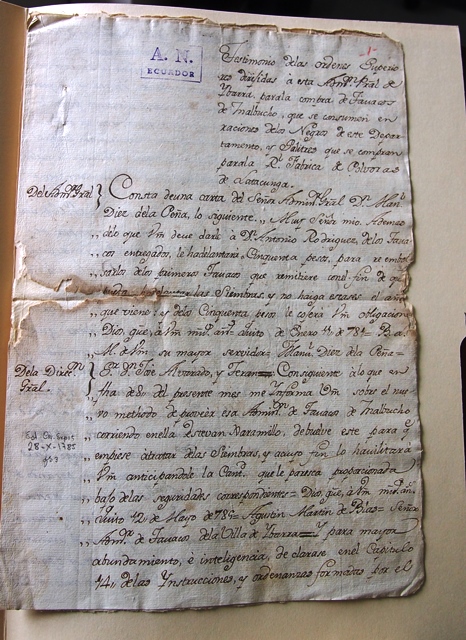 A. N.
ECUADOR
1
Testimonio de las ordenes Superio
res dirijidas à esta Admon. Pral de
Ybarra, para la compra de Tavacos
de Malbucho, que se consumen en
raciones de los Negros de este Depar-
tamento, y Salitres que se compran
para la Rl. Fabrica de Polvoras
de Latacunga.
Del Admor. Gral. Consta de una carta del Señor Admor. Gral Dn. Manl.
Diez de la Peña, lo siguiente. Muy Señor mio. Ademas
de lo que Vm deve darle à Dn. Antonio Rodriguez, de los Tava
cos entregados, le hadelantara, Cinquenta pesos, para reemb
solarlos de los primeros Tavacos que remitiere con el fin de q
las Siembras, y no haiga escases el año
que viene; y de los Cinquenta pesos le cojera Vm obligacion
Dios gue. à Vm ms. as. Quito de Enero de 781= B. a.
M. de Vm su mayor servidor= Manl. Diez de la Peña=
De la Direcn. Gral. Sor. Dn. José Alvarado, y Teran= Consiguiente à lo que en
fha de 8,, del presente mes me Ynforma Vm sobre el nue
vo methodo de proveèr esa Admon. de Tavaco de Malbucho
corriendo en ella Estevan Jaramillo, debuelve este para q
empiese atratar de las Siembras, y acuyo fin lo havilitarà
Vm anticipandole la Cant. que le paresca proporcionada
bajo de las seguridades correspondientes= Dios gue. à Vm ms. as.
Quito 12,, de Mayo de 78 = Agustin Martin de Blas= Señor
Admor. de Tavacos de la Villa de Ybarra= Y para mayor
abundamiento, è inteligencia, declarase en el Capitulo
74,, de las Ynstrucciones, y ordenanzas formadas por el
28-X-1785